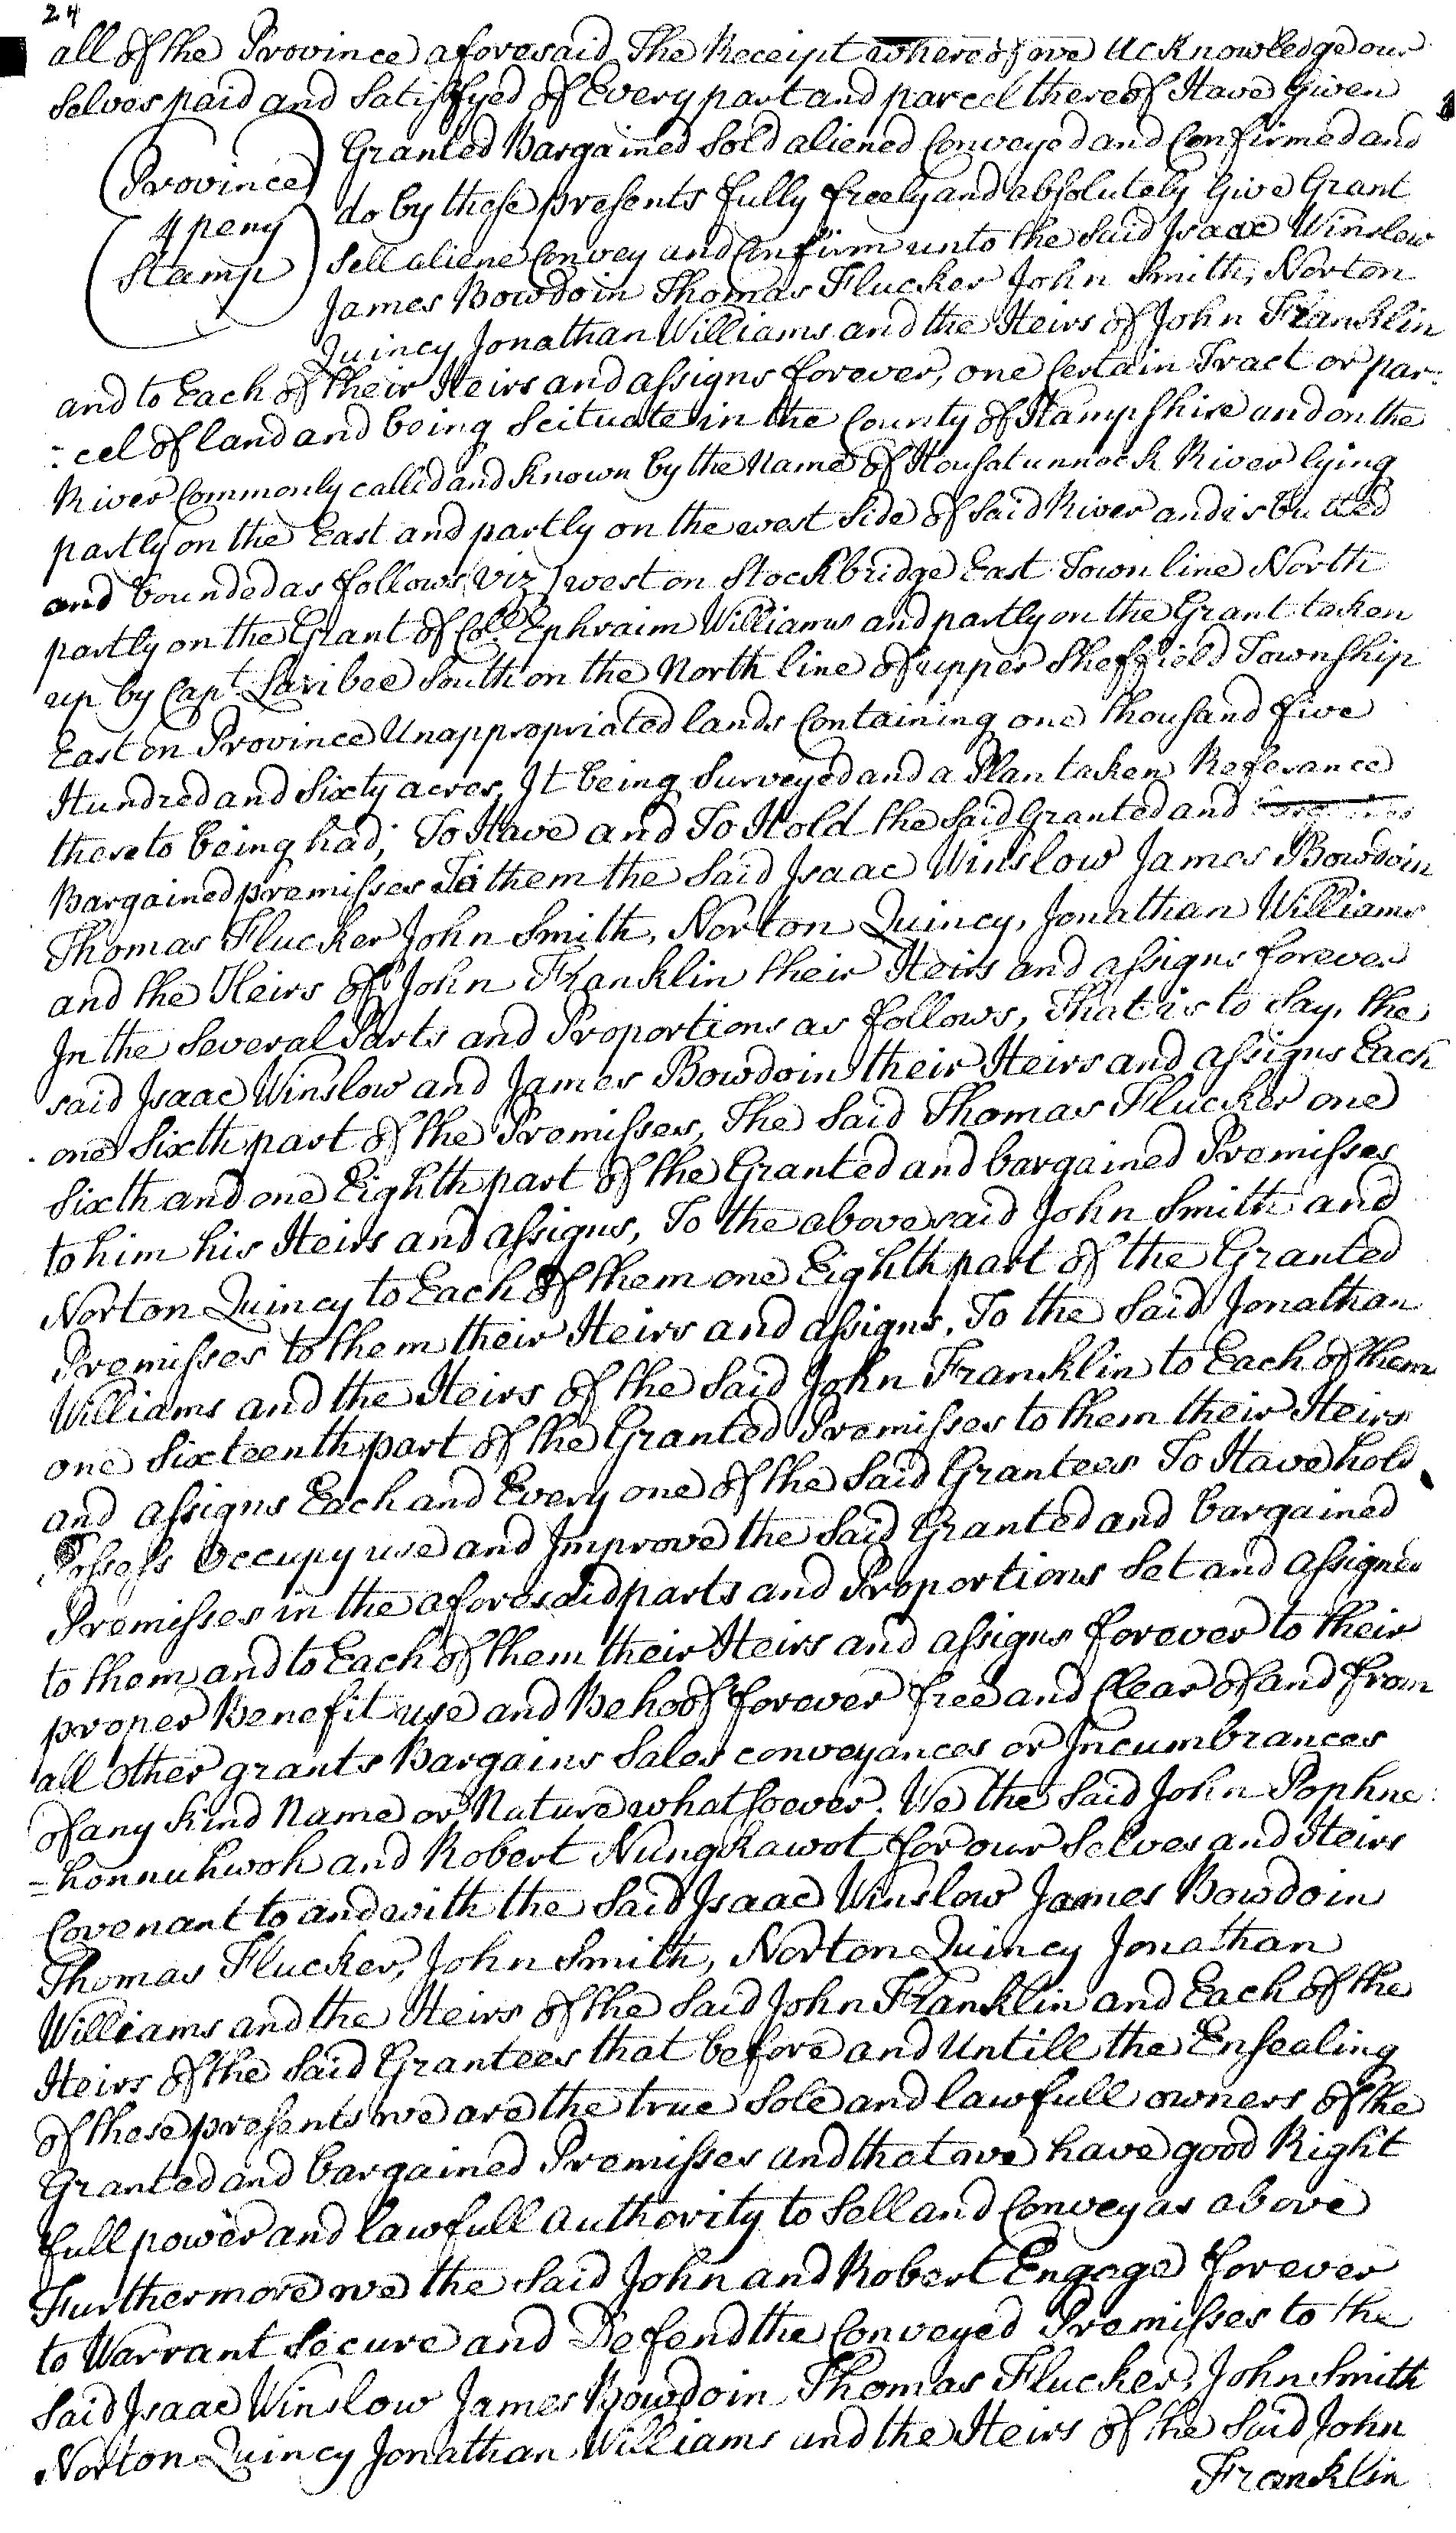 24
all of the Province aforesaid The Receipt whereof we Acknowledge our
selves paid and Satisfyed of Every part and parcel thereof Have Given
Granted Bargained Sold aliened Conveyed and Confirmed and
Province
do by these presents fully freely and absolutely Give Grant
4 peny
Sell aliene Convey and Confirm unto the Said Isaac Winslow
Stamp
James Bowdoin Thomas Flucker John Smith, Norton
Quincy Jonathan Williams and the Heirs of John Franklin
and to Each of their Heirs and assigns forever, one Certain Tract or par:
:cel of land and being Scituate in the County of Hampshire and on the
River Commonly called and known by the Name of Housatunnock River lying
partly on the East and partly on the west Side of Said River and is butted
and bounded as follows (viz) west on Stockbridge East Town line North
partly on the Grant of Coll. Ephraim Williams and partly on the Grant taken
up by Capt. Laribee South on the North line of upper Sheffield Township
East on Province Unappropriated lands Containing one thousand five
Hundred and Sixty acres, It being Surveyed and a Plan taken Referance
thereto being had; To Have and To Hold the Said Granted and
Bargained premisses To them the Said Isaac Winslow James Bowdoin
Thomas Flucker John Smith, Norton Quincy, Jonathan Williams
and the Heirs of John Franklin their Heirs and assigns forever
In the Several Parts and Proportions as follows, That is to Say, the
said Isaac Winslow and James Bowdoin their Heirs and assigns Each
one Sixth part of the Premisses, The Said Thomas Flucker one
Sixth and one Eighth part of the Granted and bargained Premisses
to him his Heirs and assigns, To the abovesaid John Smith and
Norton Quincy to Each of them one Eighth part of the Granted
Premisses to them their Heirs and assigns. To the Said Jonathan
Williams and the Heirs of the Said John Franklin to Each of them
one Sixteenth part of the Granted Premisses to them their Heirs
and assigns Each and Every one of the Said Grantees To Have hold
Possess Occupy use and Improve the Said Granted and bargained
Premisses in the aforesaid parts and Proportions Set and assigned
to them and to Each of them their Heirs and assigns forever to their
proper Benefit use and Behoof forever free and Clear of and from
all other grants Bargains Sales conveyances or Incumbrances
of any kind Name or Nature whatsoever. We the Said John Pophne:
=honnuhwoh and Robert Nungkawot for our Selves and Heirs
Covenant to and with the Said Isaac Winslow James Bowdoin
Thomas Flucker, John Smith, Norton Quincy Jonathan
Williams and the Heirs of the Said John Franklin and Each of the
Heirs of the Said Grantees that before and Untill the Ensealing
of these presents we are the true Sole and lawfull owners of the
Granted and bargained Premisses and that we have good Right
full power and lawfull Authority to Sell and Convey as above
Furthermore we the Said John and Robert Engage forever
to Warrant Secure and Defend the Conveyed Premisses to the
Said Isaac Winslow James Bowdoin Thomas Flucker, John Smith
Norton Quincy Jonathan Williams and the Heirs of the Said John
Franklin